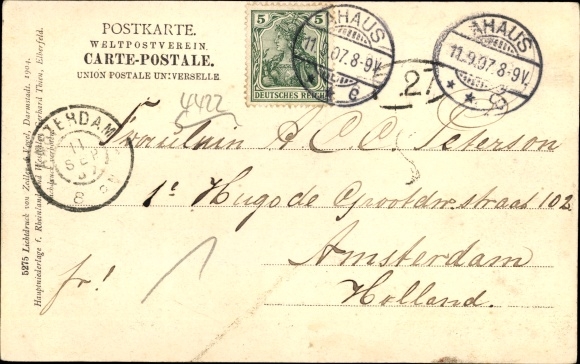 POSTKARTE.
WELTPOSTVEREIN.
CARTE-POSTALE.
UNION POSTALE UNIVERSELLE.
5 5
DEUTSCHES REICH
AHAUS
11.9.07.8-9V.
* * c
AHAUS
11.9.07.8-9V.
* *
27
4422
AMSTERDAM
11
SEP
07
8
Fräulein A C.C. Peterson
1e Hugo de Grootdw.straat 102
Amsterdam
Holland.
fr!
5275 Lichtdruck von Zedler & Vogel, Darmstadt, 1904.
Hauptniederlage f. Rheinland und Westfalen: Gerhard Thien, Elberfeld.